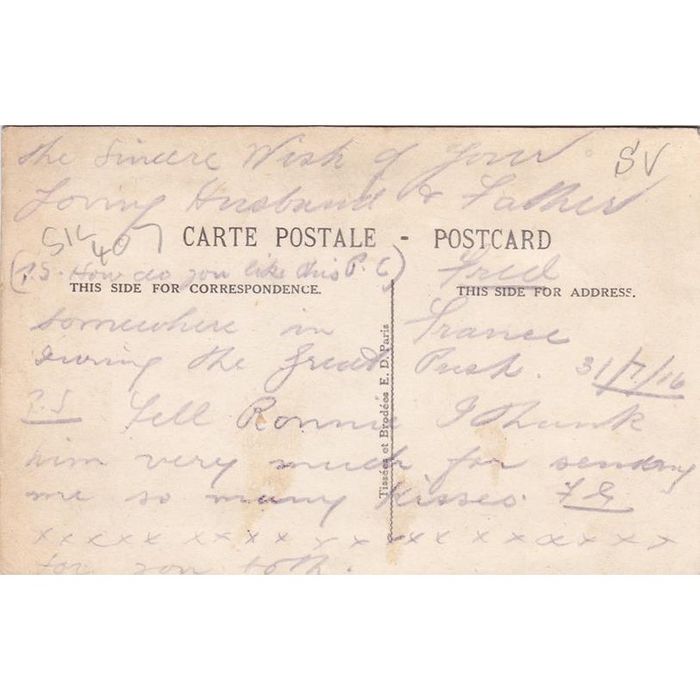 the Sincere Wish of Your
SV
Loving Husband & Father
SIL
407
CARTE POSTALE - POSTCARD
(P.S. How do you like this P.C) Fred
THIS SIDE FOR CORRESPONDENCE.
THIS SIDE FOR ADDRESS.
somewhere in France
During the Great Push. 31/7/16
P.S Tell Ronnie I Thank
him very much for sending
me so many kisses. F G
x x x x x x x x x x x x x x x x x x x
for you both.
Tissées et Brodées E. D. Paris